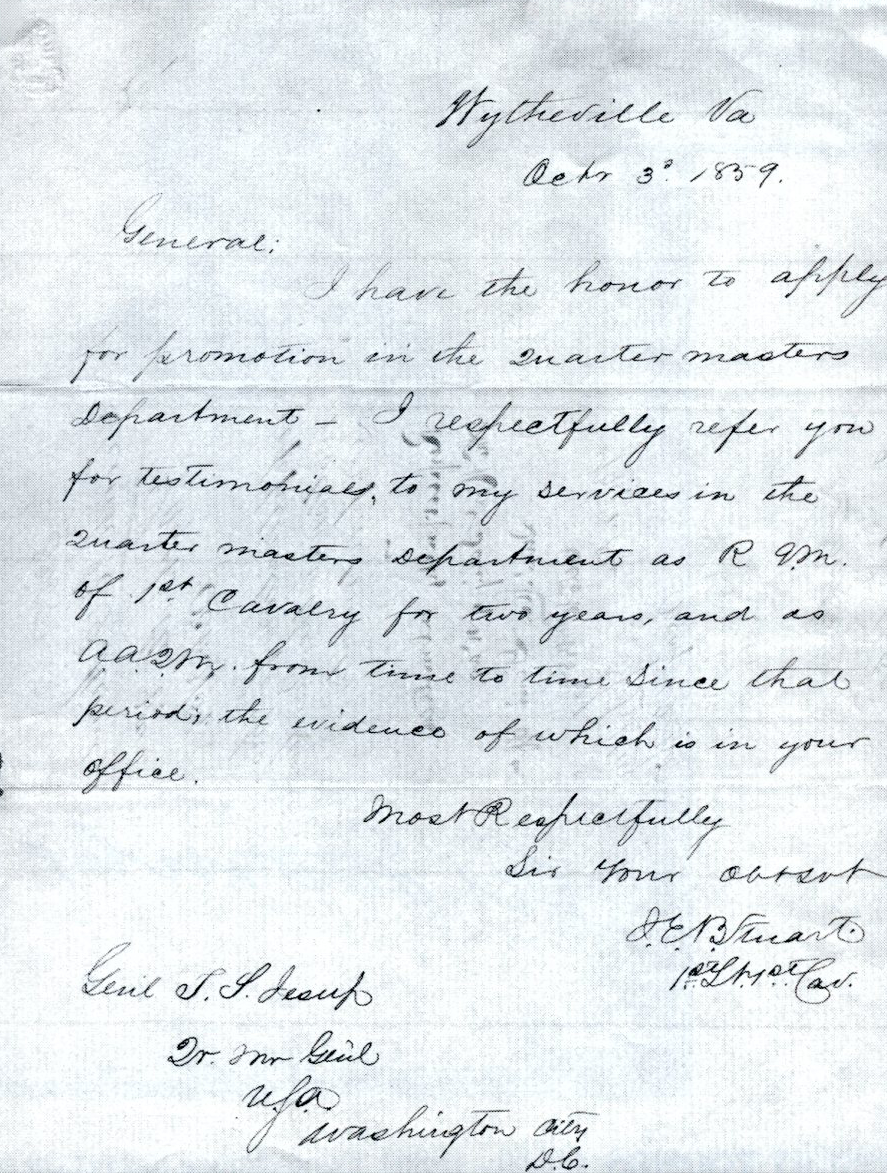 Wytheville Va
Octr 3d 1859.
General;
I have the honor to apply
for promotion in the Quarter masters
Department – I respectfully refer you
for testimonials, to my services in the
Quarter masters Department as R Q.M.
of 1st Cavalry for two years, and as
A.A.Q.M. from time to time since that
period; the evidence of which is in your
office.
Most Respectfully
Sir Your obt svt
J.E.B. Stuart
1st Lt. 1st Cav.
Genl T. S. Jesup
Qr. Mr Genl
U.S.A.
Washington City
D.C.